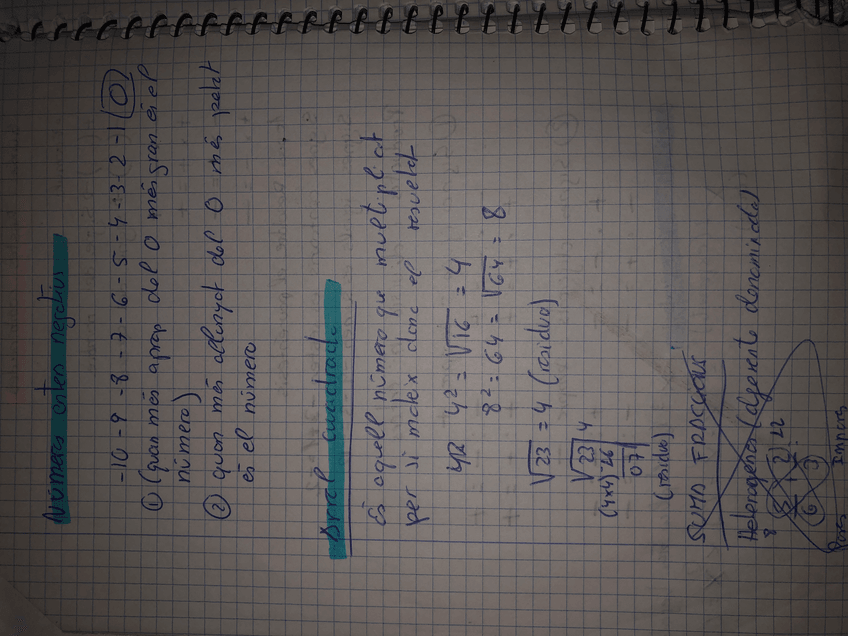 Números enters negatius
-10 - 9 - 8 - 7 - 6 - 5 - 4 - 3 - 2 - 1 0
① (quan més aprop del 0 més gran és el
número)
② quan més allunyat del 0 més petit
és el número
Arrel cuadrada
És aquell número que multiplicat
per si mateix dona el resultat
4² = √16 = 4
8² = 64 = √64 = 8
√23 = 4 (residuo)
√23 4
(4x4) 16
07
(residuo)
SUMA FRACCIONS
Heterogenos (diferente denominador)
8 22
8 2
6 3
Impars